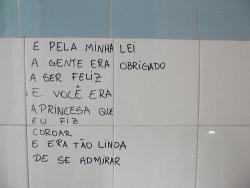 E PELA MINHA LEI
A GENTE ERA OBRIGADO
A SER FELIZ
E VOCÊ ERA
A PRINCESA QUE
EU FIZ
COROAR
E ERA TÃO LINDA
DE SE ADMIRAR